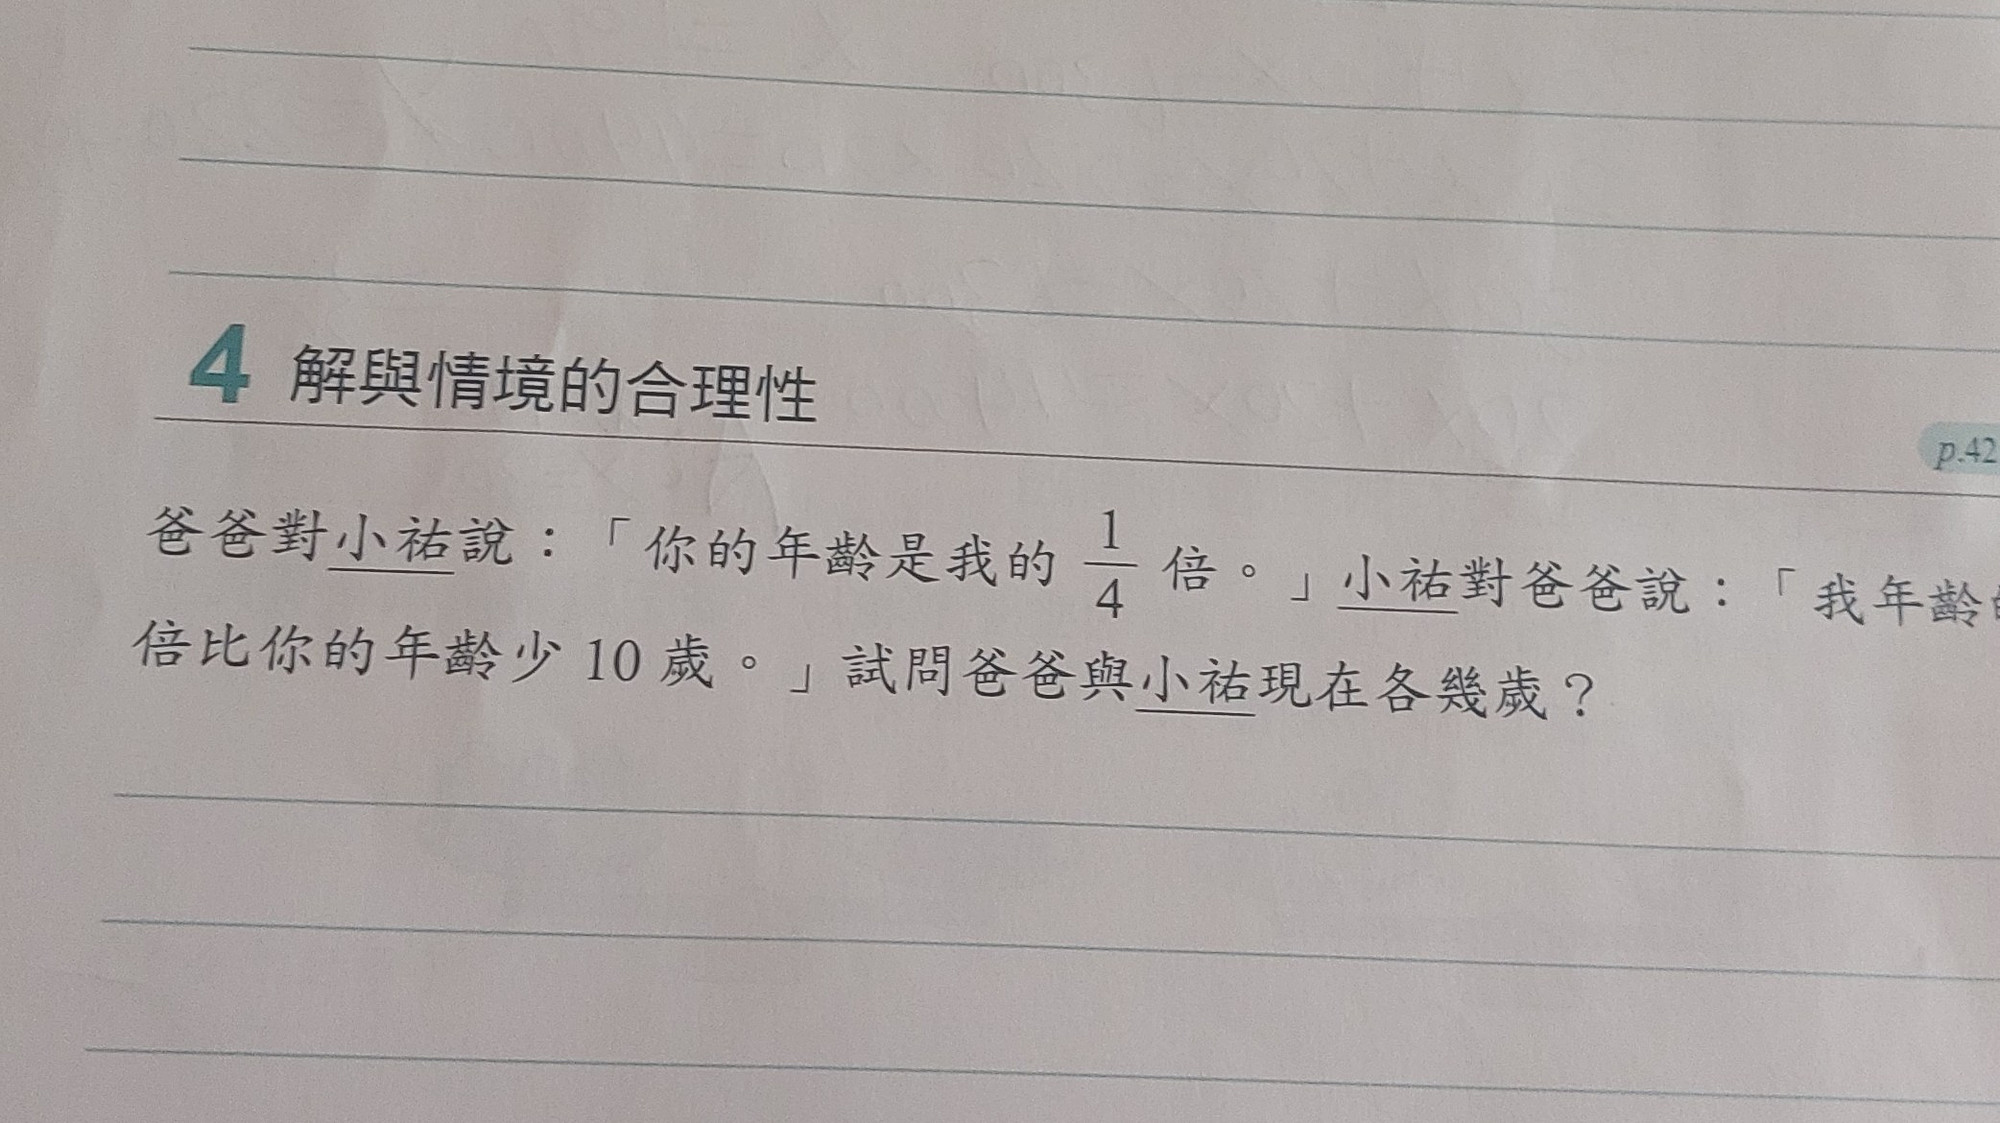 4 解與情境的合理性
p.42
爸爸對小祐說：「你的年齡是我的 1/4 倍。」小祐對爸爸說：「我年齡
倍比你的年齡少 10 歲。」試問爸爸與小祐現在各幾歲？